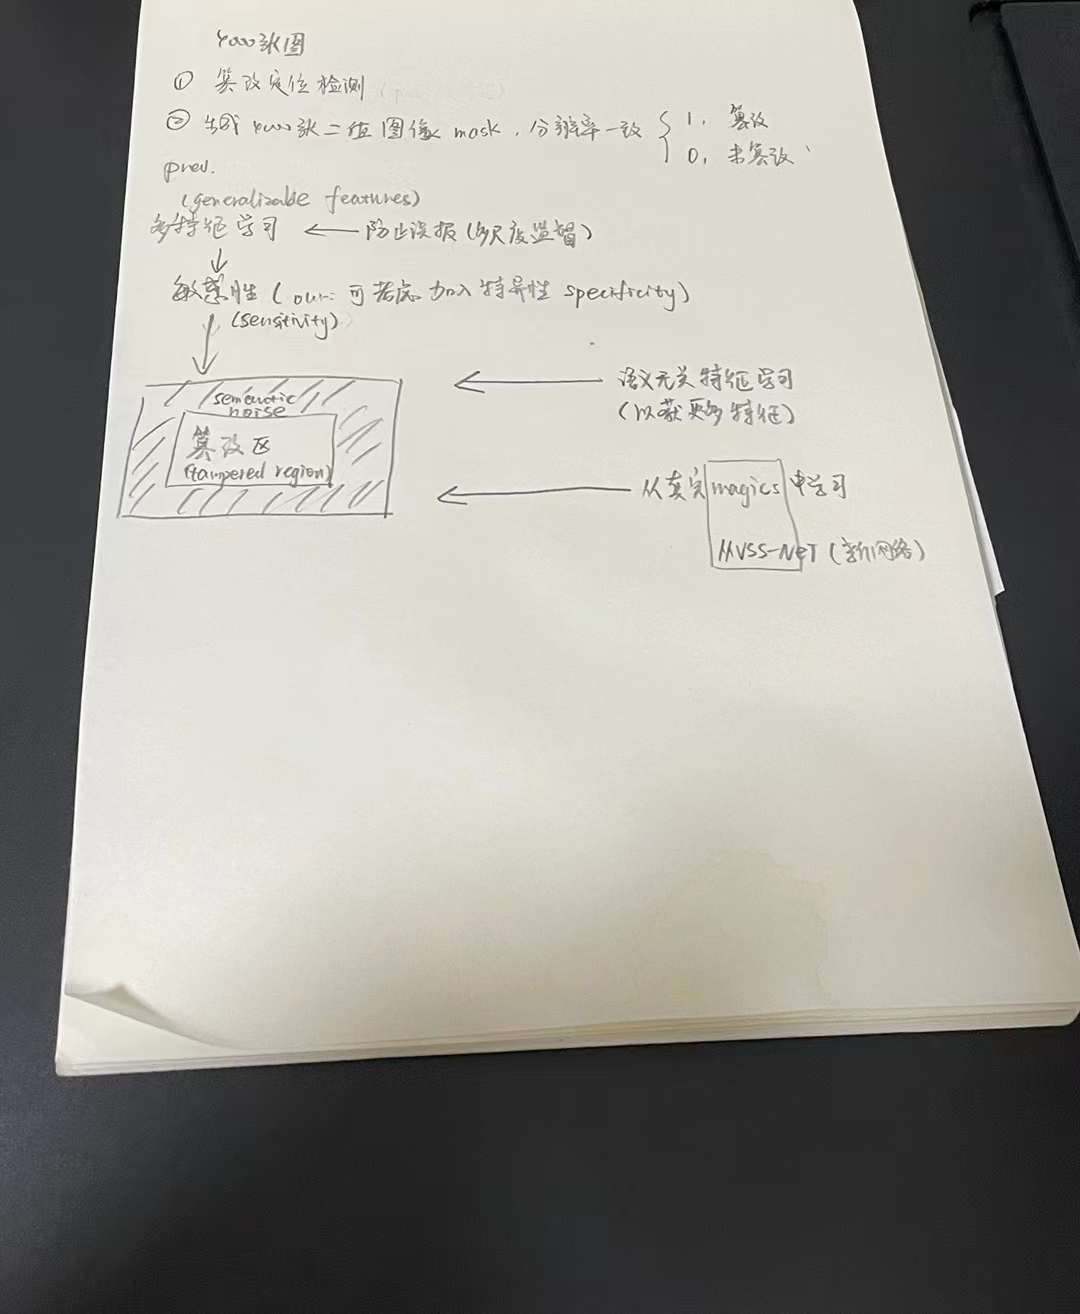 4000张图
① 篡改定位检测
② 生成4000张二值图像mask，分辨率一致 { 1，篡改
0，未篡改
prev.
(generalizable features)
多特征学习 ← 防止误报(多尺度监督)
敏感性(our: 可考虑加入特异性 specificity)
(sensitivity)
semantic
noise
篡改区
(tampered region)
语义无关特征学习
(以获更多特征)
从真实magics中学习
MVSS-NeT(新网络)